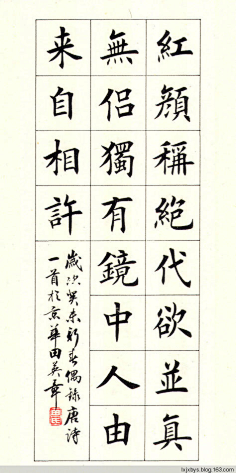 紅顏稱絕代欲並真
無侶獨有鏡中人由
来自相許
歲次癸未新春偶錄唐诗
一首於京華田英章
lxjxbys.blog.163.com